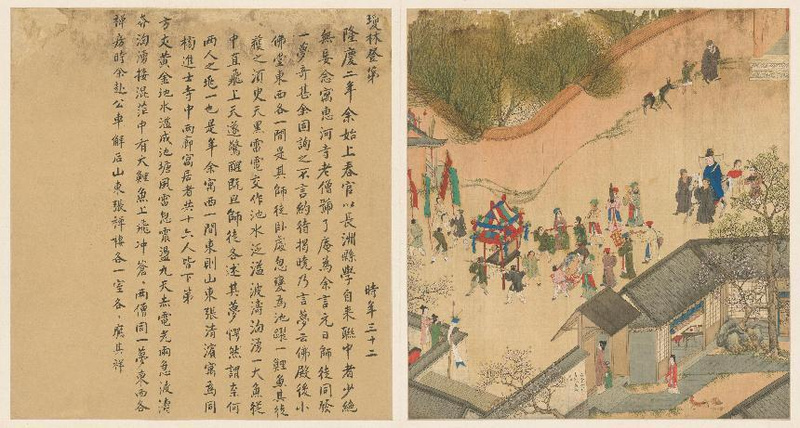 瓊林登第
時年三十二
隆慶二年余始上春官以長洲縣學自来聯中者少絶
無妄念寓惠河寺老僧號了庵為余言元日師徒同發
一夢奇甚余固詢之不言約待揭曉乃言夢云佛殿後小
佛堂東西各一間是其師徒卧處忽變為池躍一鯉魚其後
發之須臾天黑雷電交作池水泛溢波濤洶湧一大魚從
中直飛上天遂驚醒既旦師徒各述其夢愕然謂奈何
兩人之兆一也是年余寓西一間東則山東張清濱寓焉同
榜進士寺中兩廊寓居者共十六人皆下第
方丈黄金池水溢成池塘風雷忽震盪九天赤電光雨急波濤
奔洶湧接混茫中有大鯉魚上飛冲蒼〻兩僧同一夢東西各
禪房時余赴公車解后山東張禪樓各一室各〻應其祥